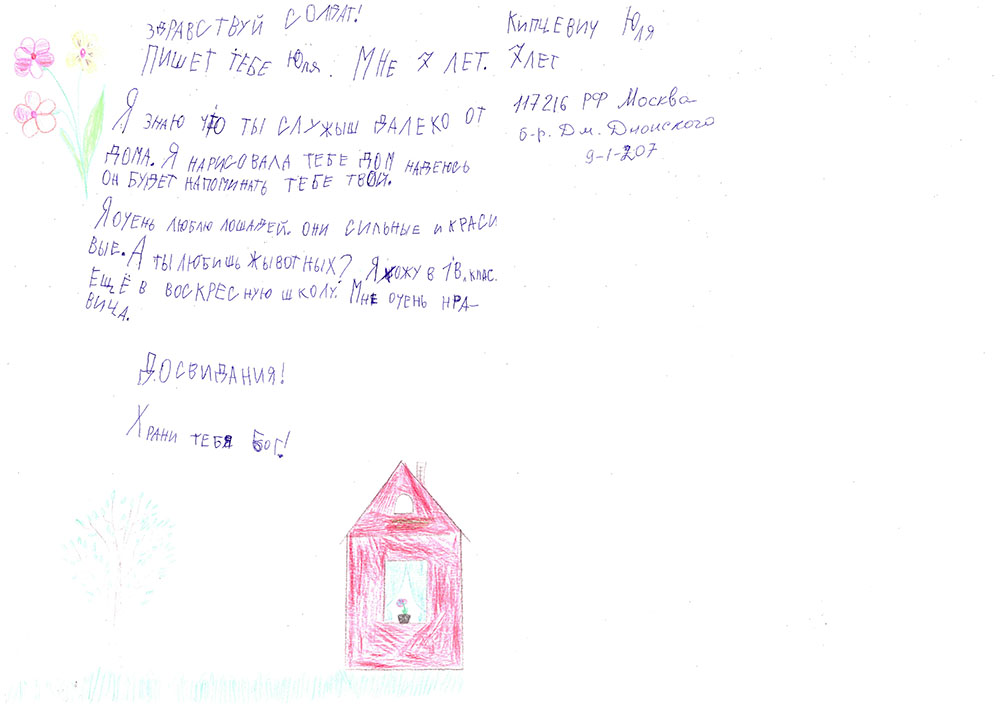 ЗДРАВСТВУЙ СОЛДАТ!
ПИШЕТ ТЕБЕ Юля. МНЕ 7 ЛЕТ.
Я ЗНАЮ ЧТО ТЫ СЛУЖЫШ ДАЛЕКО ОТ
ДОМА. Я НАРИСОВАЛА ТЕБЕ ДОМ НАДЕЮСЬ
ОН БУДЕТ НАПОМИНАТЬ ТЕБЕ ТВОЙ.
Я ОЧЕНЬ ЛЮБЛЮ ЛОШАДЕЙ. ОНИ СИЛЬНЫЕ И КРАСИ
ВЫЕ. А ТЫ ЛЮБИШЬ ЖЫВОТНЫХ? Я ХОЖУ В 1В. КЛАС.
ЕЩЁ В ВОСКРЕСНУЮ ШКОЛУ. МНЕ ОЧЕНЬ НРА-
ВИЦА.
ДОСВИДАНИЯ!
ХРАНИ ТЕБЯ БОГ!
КИПЦЕВИЧ Юля
7 ЛЕТ
117216 РФ Москва
б-р. Дм. Донского
9-1-207